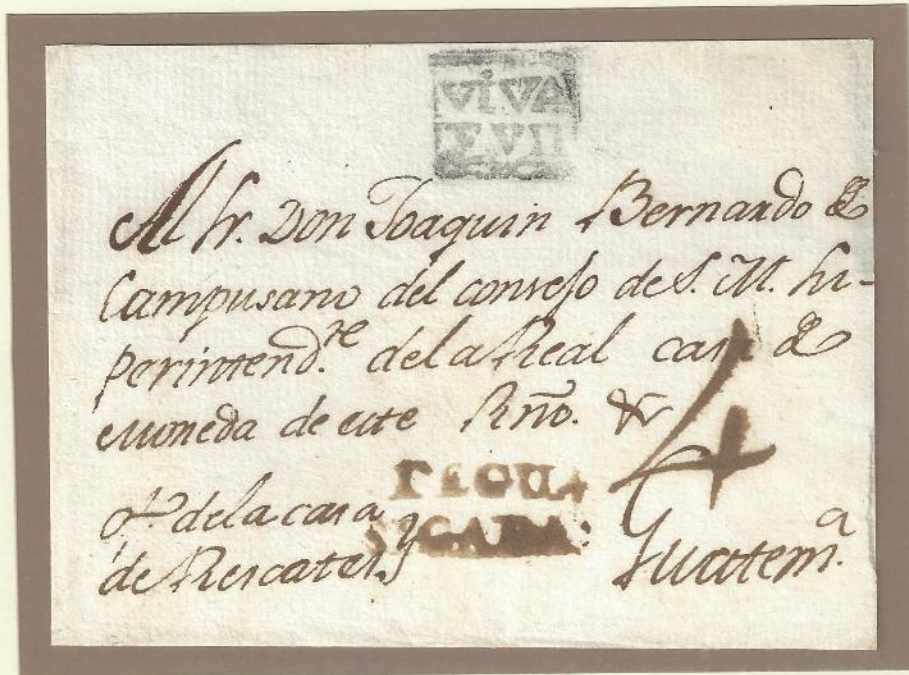 VIVA
F. VII
Al Sr. Don Joaquin Bernardo de
Campusano del consejo de S. M. Su-
perintend.te dela Real casa de
Moneda de este Rño. &
4
TEGU
SIGALPA:
of.o dela casa
de Rescates
Guatem.a